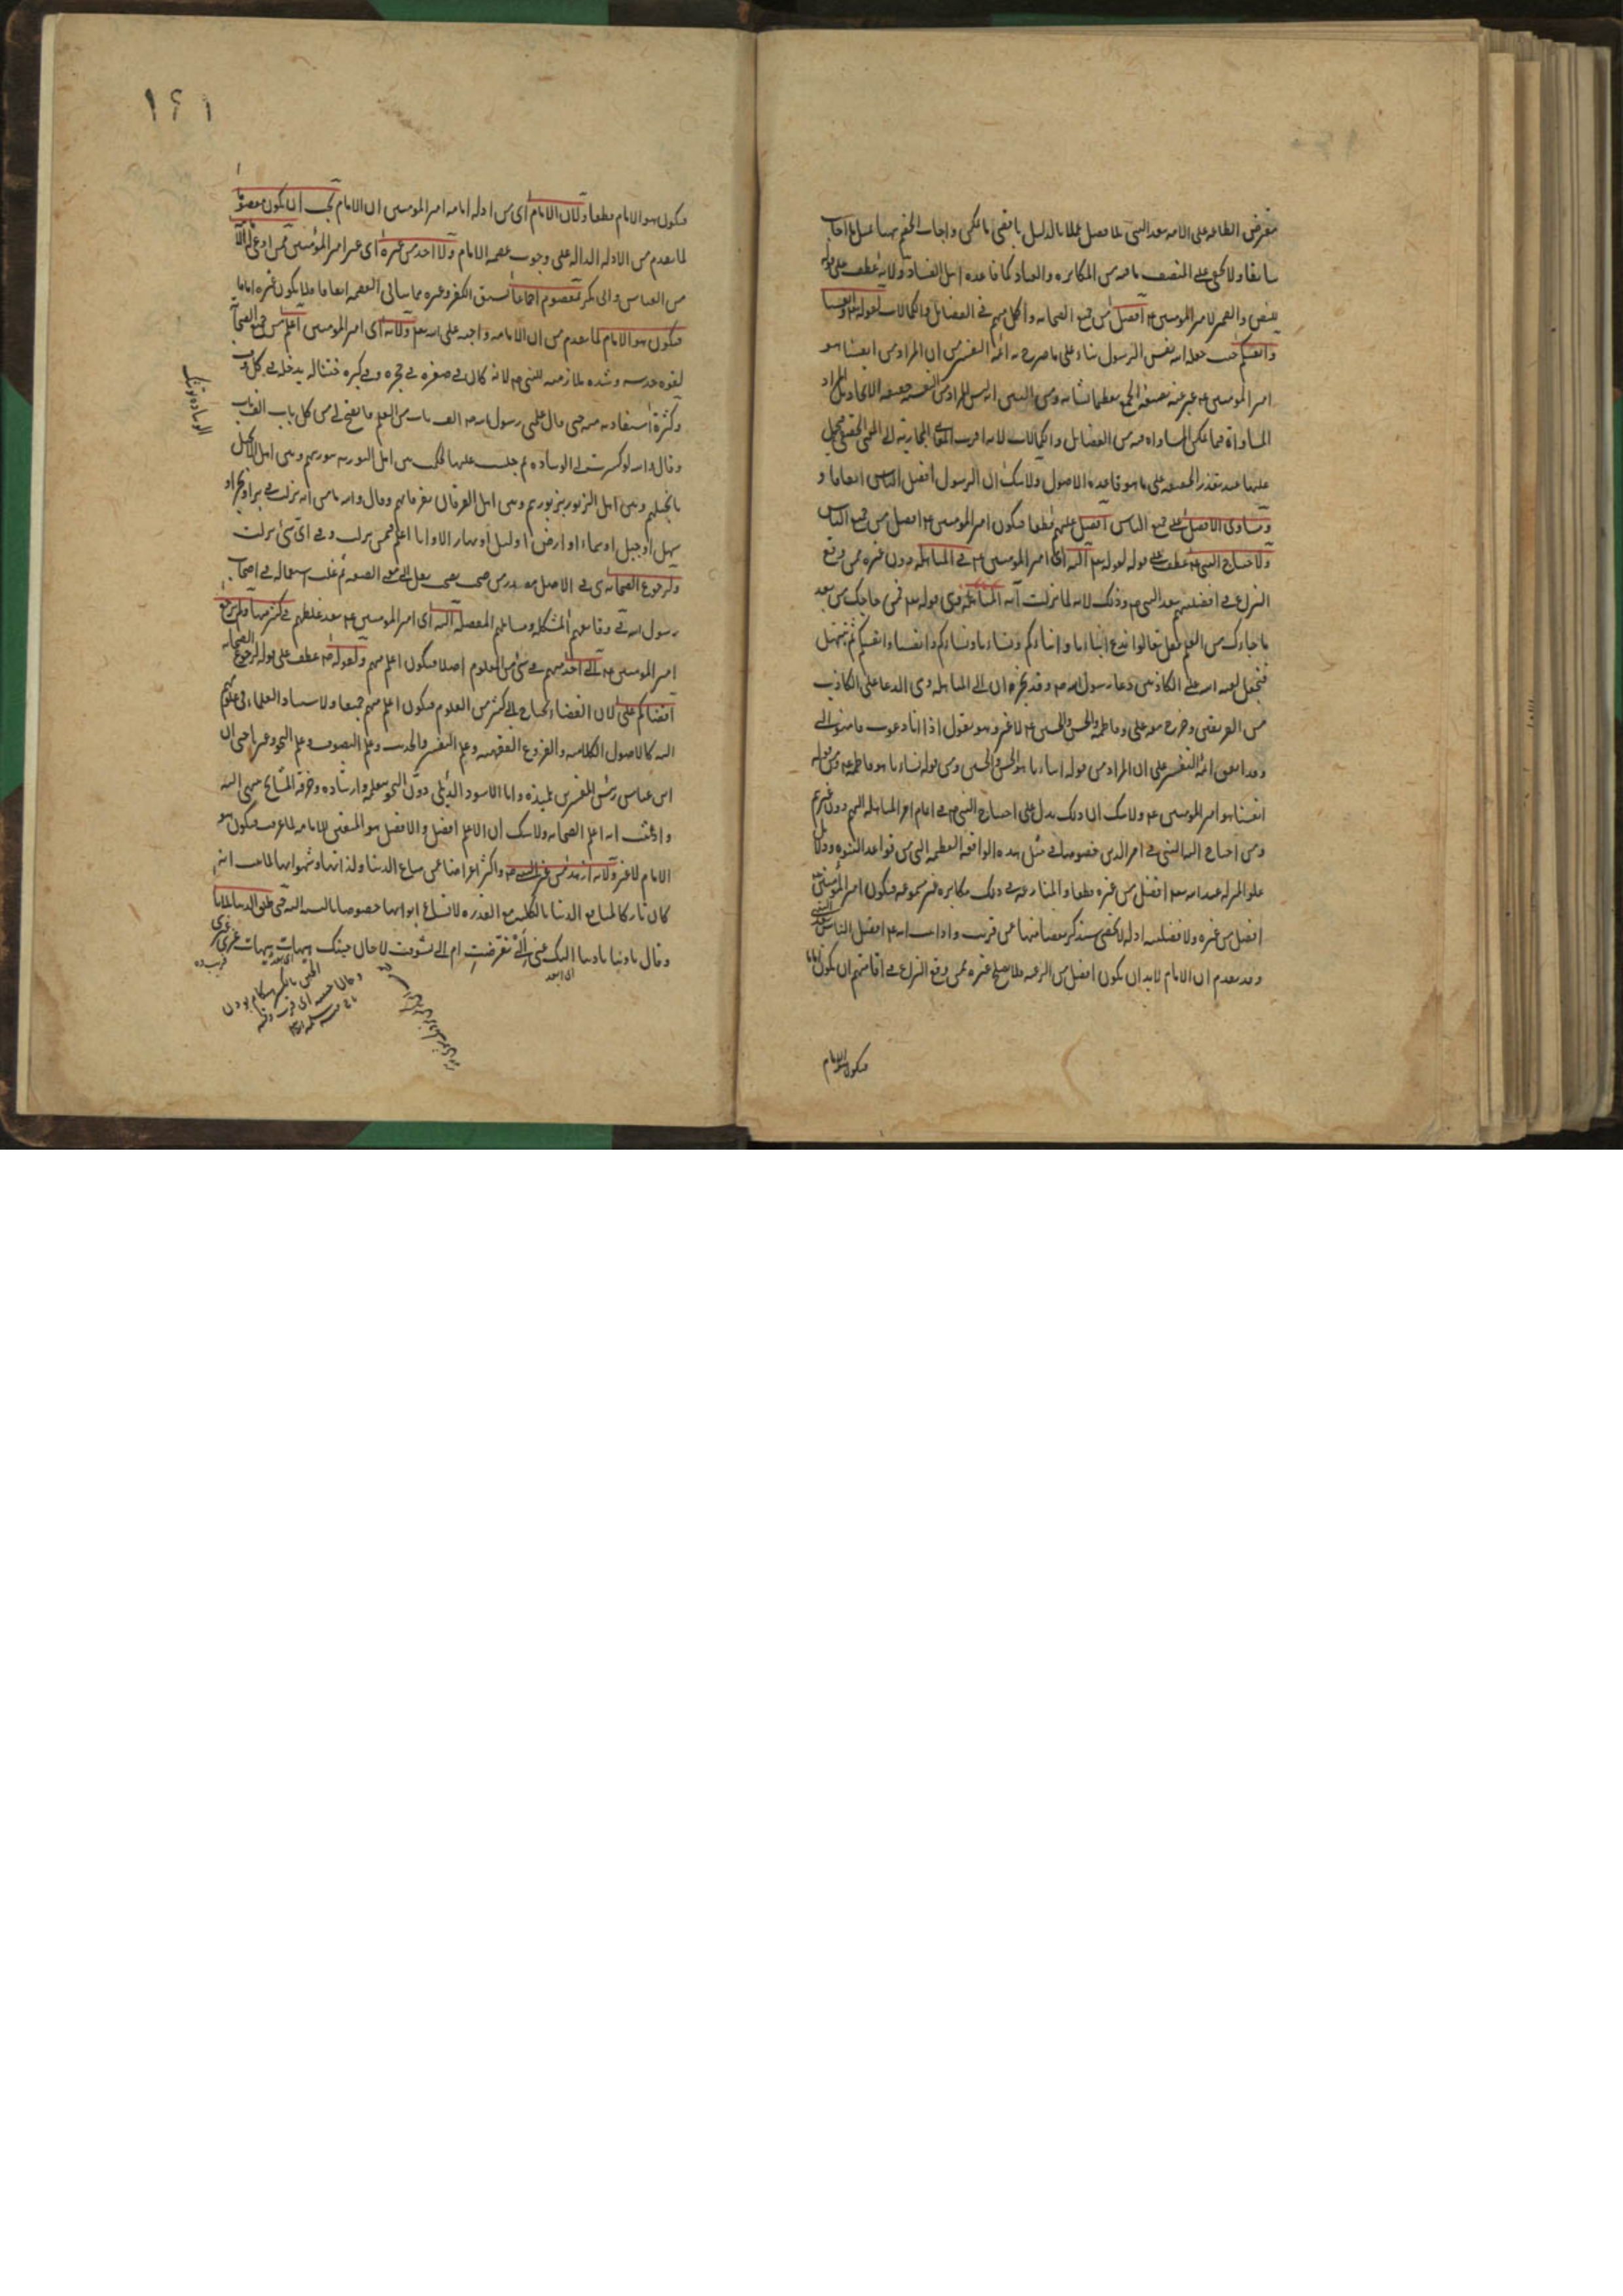 مفترض الطاعة على الامة بعد النبى بلا فصل عملا بالدليل
سابقا ولا يخفى على المنصف ما فيه من المكابرة والعناد كما قاعدة اهل الفساد ولانه عطف على قوله
للنص والضمير لامير المؤمنين ع افضل من جميع الصحابة واكمل منهم فى الفضائل والكمالات لقوله تع وانفسنا
وانفسكم حيث جعله الله نفس الرسول بناء على ما صرح به ائمة التفسير من ان المراد من انفسنا هو
امير المؤمنين ع عبر عنه بصيغة الجمع تعظيما لشانه ومن البين انه ليس المراد من النفس حقيقة الاتحاد بل المراد
المساواة فيما يمكن المساواة فيه من الفضائل والكمالات لانه اقرب المعانى المجازية الى المعنى الحقيقى فيحمل
عليها عند تعذر الحقيقة على ما هو قاعدة الاصول ولا شك ان الرسول افضل الناس اتفاقا و
ومساوى الافضل على جميع الناس افضل عليهم قطعا فيكون امير المؤمنين ع افضل من جميع الناس
ولاحتياج النبى ع عطف على قوله لقوله تع اليه اى امير المؤمنين ع فى المباهلة دون غيره ممن وقع
النزاع فى افضليتهم بعد النبى ص وذلك لانه لما نزلت آية المباهلة وهى قوله تع فمن حاجك من بعد
ما جاءك من العلم فقل تعالوا ندع ابناءنا وابناءكم ونساءنا ونساءكم وانفسنا وانفسكم ثم نبتهل
فنجعل لعنة الله على الكاذبين دعا رسول الله ص وفد نجران الى المباهلة وهى الدعا على الكاذب
من الفريقين وخرج معه على وفاطمة والحسن والحسين ع لا غير وهو يقول اذا انا دعوت فامنوا الى
وقد اتفق ائمة التفسير على ان المراد من قوله ابناءنا هو الحسن والحسين ومن قوله نساءنا هو فاطمة ع ومن قوله
انفسنا هو امير المؤمنين ع ولا شك ان ذلك يدل على احتياج النبى ص فى اتمام امر المباهلة اليهم دون غيرهم
ومن احتاج اليه النبى فى امر الدين خصوصا فى مثل هذه الواقعة العظيمة التى من قواعد النبوة ودلائل
علو المرتبة عند الله تع افضل من غيره قطعا والمنازعة فى ذلك مكابرة غير مسموعة فيكون امير المؤمنين ع
افضل من غيره ولافضليته ادلة لا تحصى سنذكر بعضا منها عن قريب واذا ثبت انه ع افضل الناس بعد النبى
وقد تقدم ان الامام لا بد ان يكون افضل من الرعية فلا يصلح غيره ممن وقع النزاع فى امامتهم ان يكون اماما
فيكون هو الامام
١٤١
فيكون هو الامام قطعا ولان الامام اى من ادلة امامة امير المؤمنين ان الامام يجب ان يكون معصوما
لما تقدم من الادلة الدالة على وجوب عصمة الامام ولا احد من غيره اى غير امير المؤمنين ممن ادعى له الامامة
من العباس وابى بكر بمعصوم اجماعا لسبق الكفر وغيره مما ينافى العصمة اتفاقا فلا يكون غيره اماما
فيكون هو الامام لما تقدم من ان الامامة واجبة على الله تع ولانه اى امير المؤمنين اعلم من جميع الصحابة
لقوة حدسه وشدة ملازمته للنبى ص لانه كان فى صغره فى حجره وفى كبره ختنا له يدخله فى كل وقت
وكثرة استفادته منه حتى قال علمنى رسول الله ص الف باب من العلم فانفتح لى من كل باب الف باب
وقال والله لو كسرت لى الوسادة ثم جلست عليها لحكمت بين اهل التورية بتوريتهم وبين اهل الانجيل
بانجيلهم وبين اهل الزبور بزبورهم وبين اهل الفرقان بفرقانهم وقال والله ما من آية نزلت فى بر او بحر او
سهل او جبل او سماء او ارض او ليل او نهار الا وانا اعلم فيمن نزلت وفى اى شئ نزلت
ولرجوع الصحابة هى فى الاصل مصدر من صحب يصحب نقل الى معنى الصفة ثم غلب استعماله فى اصحاب
رسول الله فى وقايعهم المشكلة ومسائلهم المعضلة اليه اى امير المؤمنين ع بعد غلطهم فى كثير منها ولم يرجع
امير المؤمنين ع الى احد منهم فى شئ من العلوم اصلا فيكون اعلم منهم ولقوله ص عطف على قوله لرجوع الصحابة
اقضاكم على لان القضاء يحتاج الى كثير من العلوم فيكون اعلم منهم جميعا ولاستناد العلماء فى علومهم
اليه كالاصول الكلامية والفروع الفقهية وعلم التفسير والحديث وعلم التصوف وعلم النحو وغيرها حتى ان
ابن عباس رئيس المفسرين تلميذه وابا الاسود الدئلى دون النحو بتعليمه وارشاده وخرقة المشايخ ينتهى اليه
واذا ثبت انه اعلم الصحابة ولا شك ان الاعلم افضل والافضل هو المتعين للامامة لما عرفت فيكون هو
الامام لا غير ولانه ازهد من غير النبى ص واكثر اعراضا عن متاع الدنيا ولذاتها وشهواتها لما ثبت انه
كان تاركا لمتاع الدنيا بالكلية مع القدرة لاتساع ابوابها خصوصا بالنسبة اليه حتى طلق الدنيا ثلاثا
وقال يا دنيا يا دنيا اليك عنى الى تعرضت ام الى تشوقت لا حان حينك هيهات هيهات غرى غيرى
اى ابعد
فريب ده